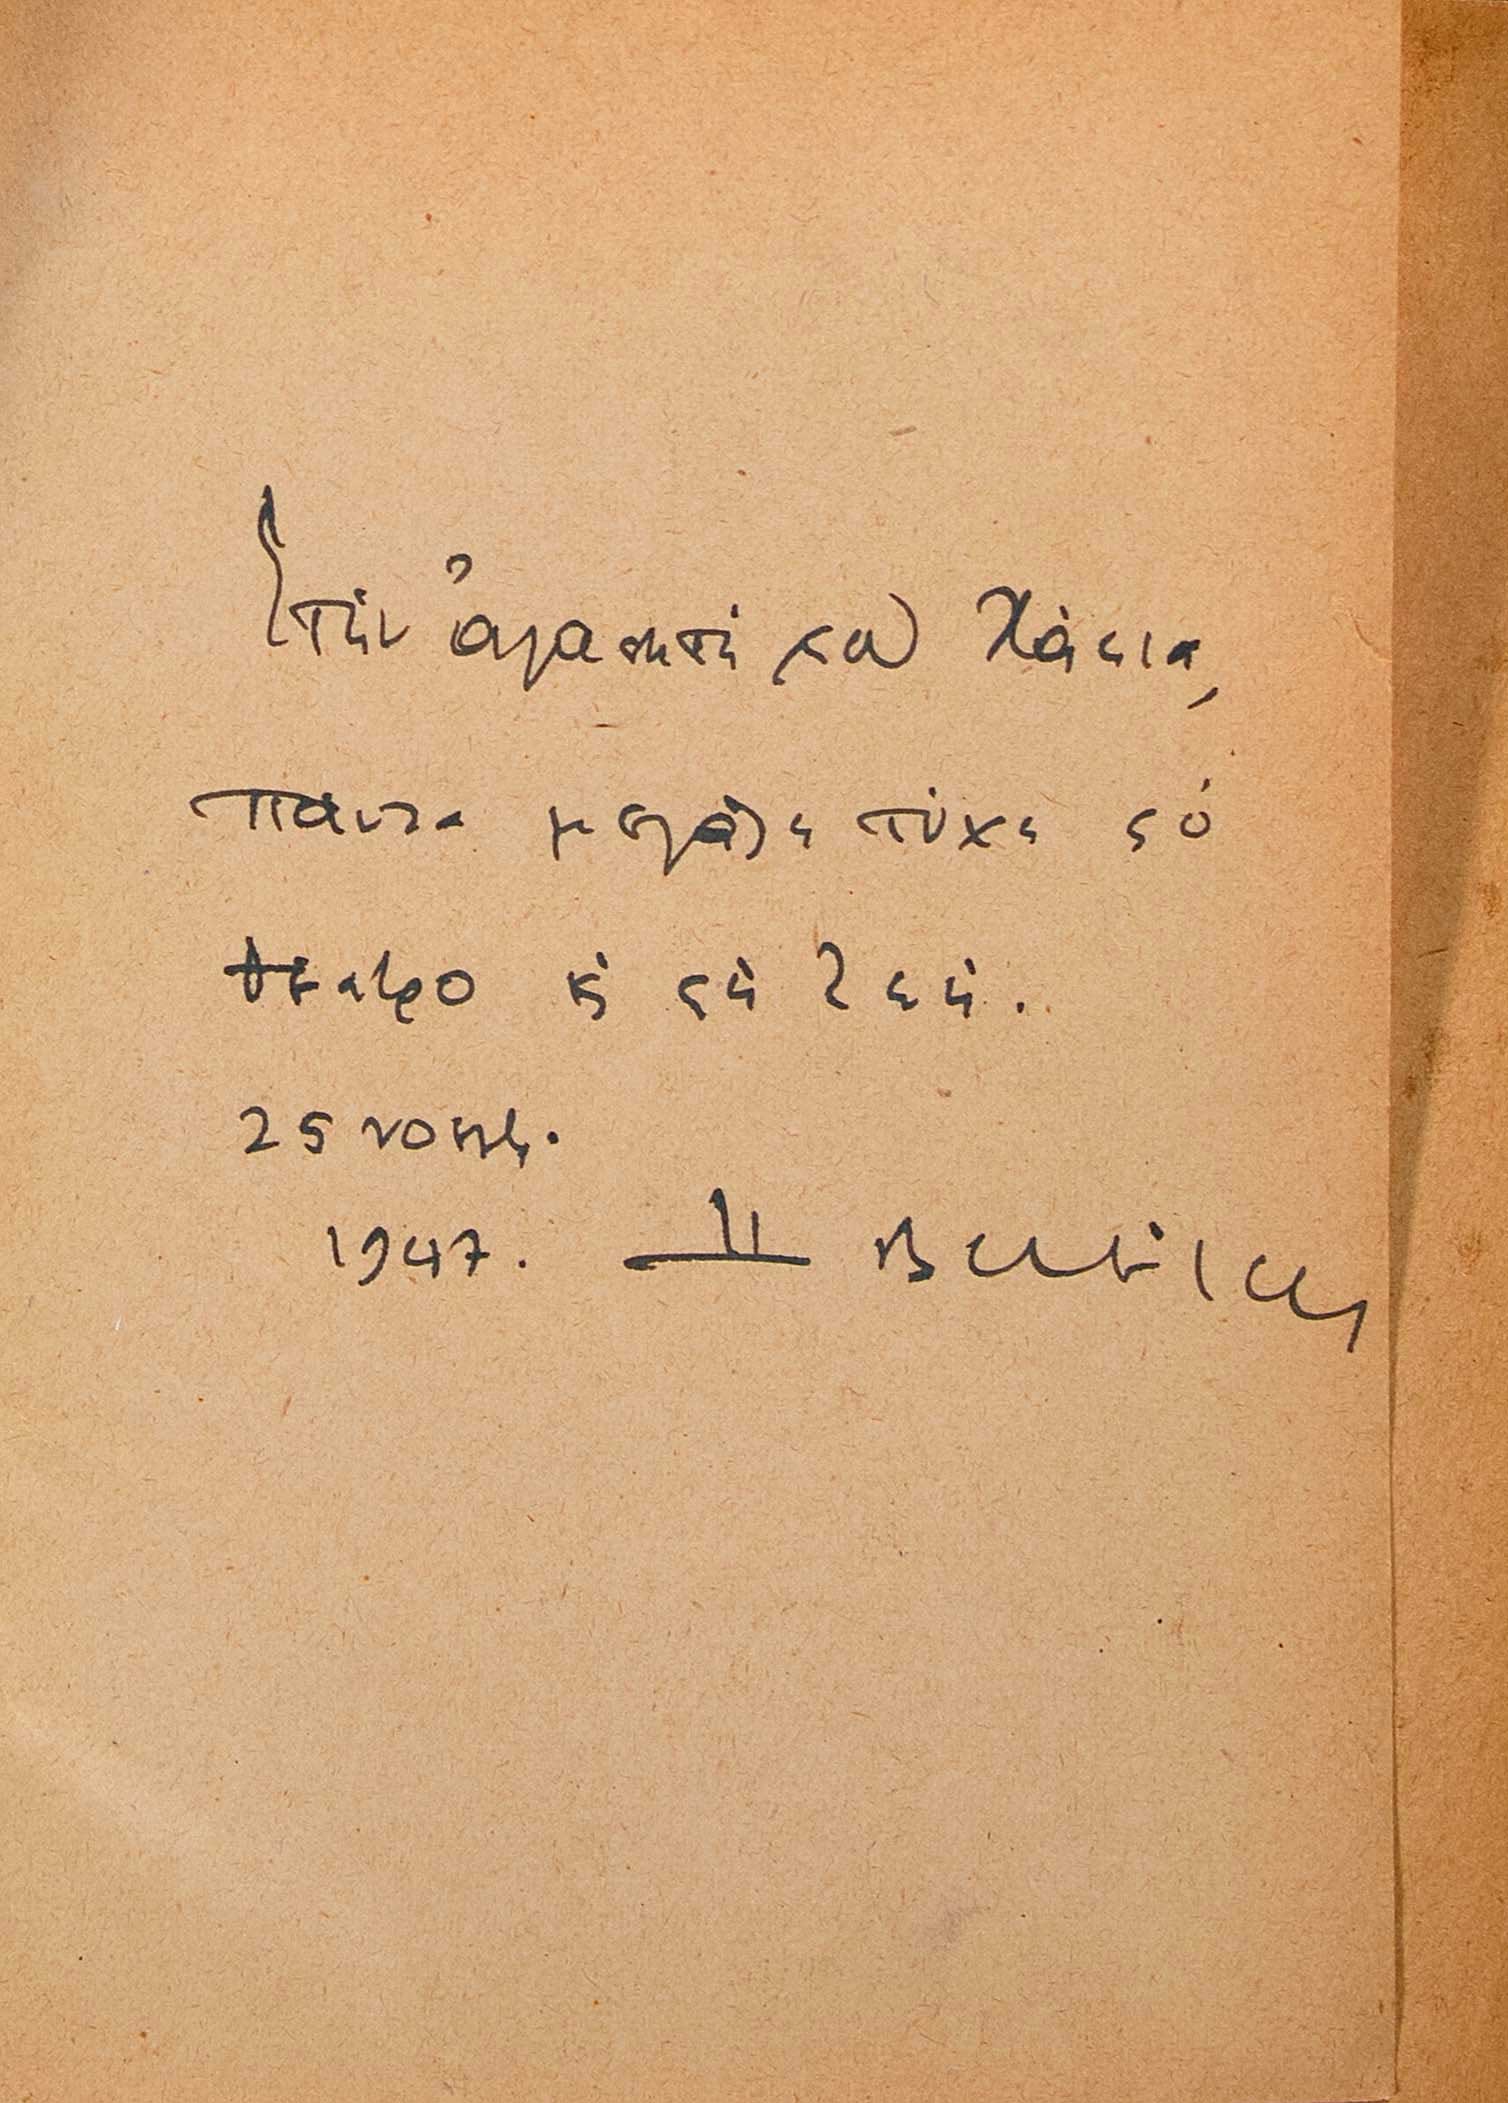 Στὴν ἀγαπητή μου Χάνια,
πάντα μεγάλη τύχη στὸ
θέατρο κ στὴ ζωή.
25 νοεμβ.
1947.